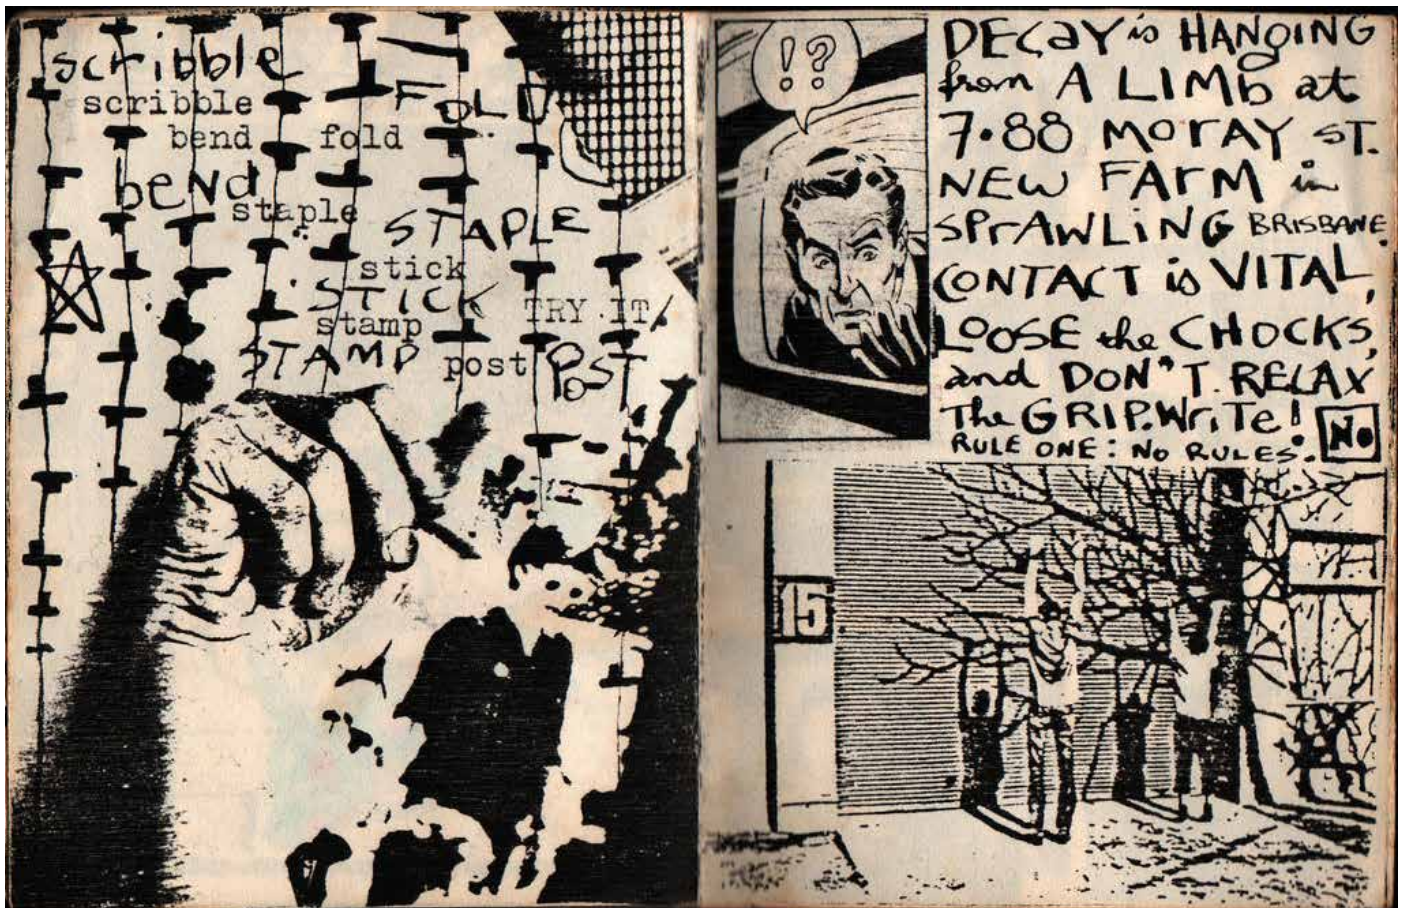 scribble
scribble
FOLD
bend fold
bend
staple
STAPLE
stick
STICK
TRY.IT!
stamp
STAMP
post POST
!?
DECaY is HANgING
from A LIMb at
7.88 MOrAY ST.
NEW FArM in
SPrAWLiNG BRISBANE.
CONTACT is VITAL,
LOOSE the CHOCKS,
and DON'T. RELAX
The GRIP. WriTe!
RULE ONE: No RULES.
No
15